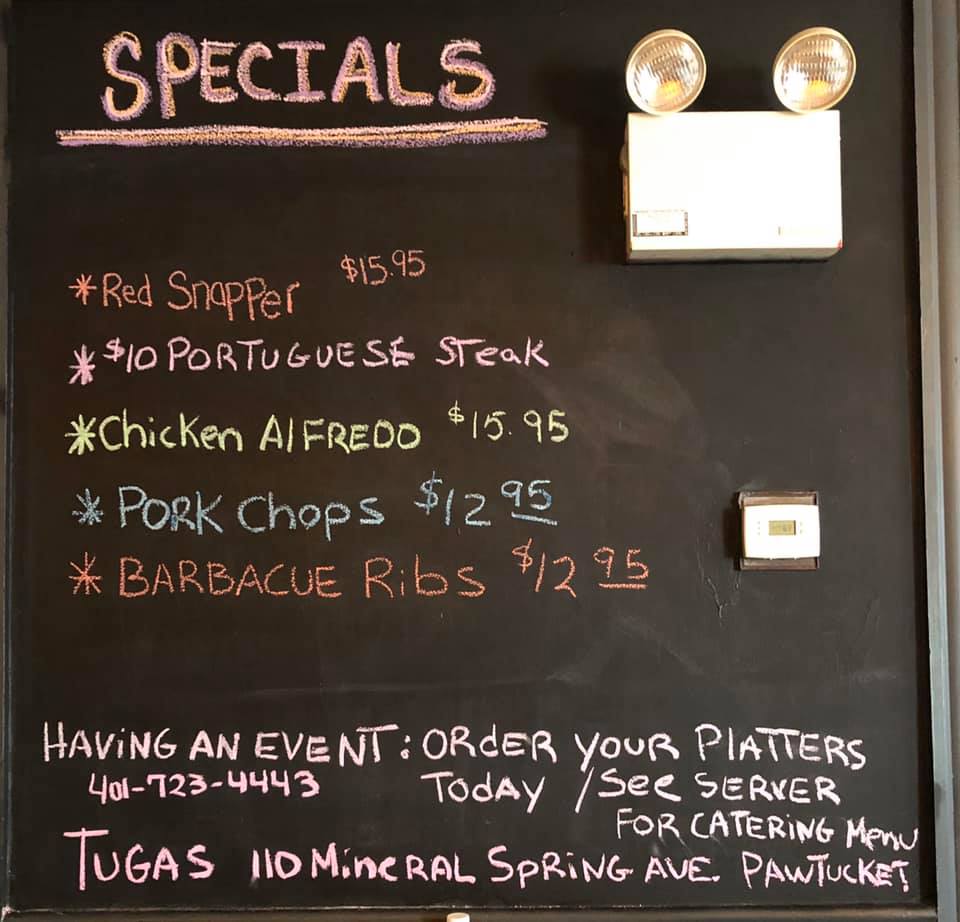 SPECIALS
*Red Snapper $15.95
*$10 PORTUGUESE STeak
*Chicken AlFREDO $15.95
* PORK Chops $12 95
* BARBACUE Ribs $12 95
HAViNG AN EVENT: ORdER YOUR PlATTERS
401-723-4443 TodAY /See SERVER
FOR CATERiNG Menu
TUGAS 110 MiNeRAL SpRiNG AVE. PAWTUCKET